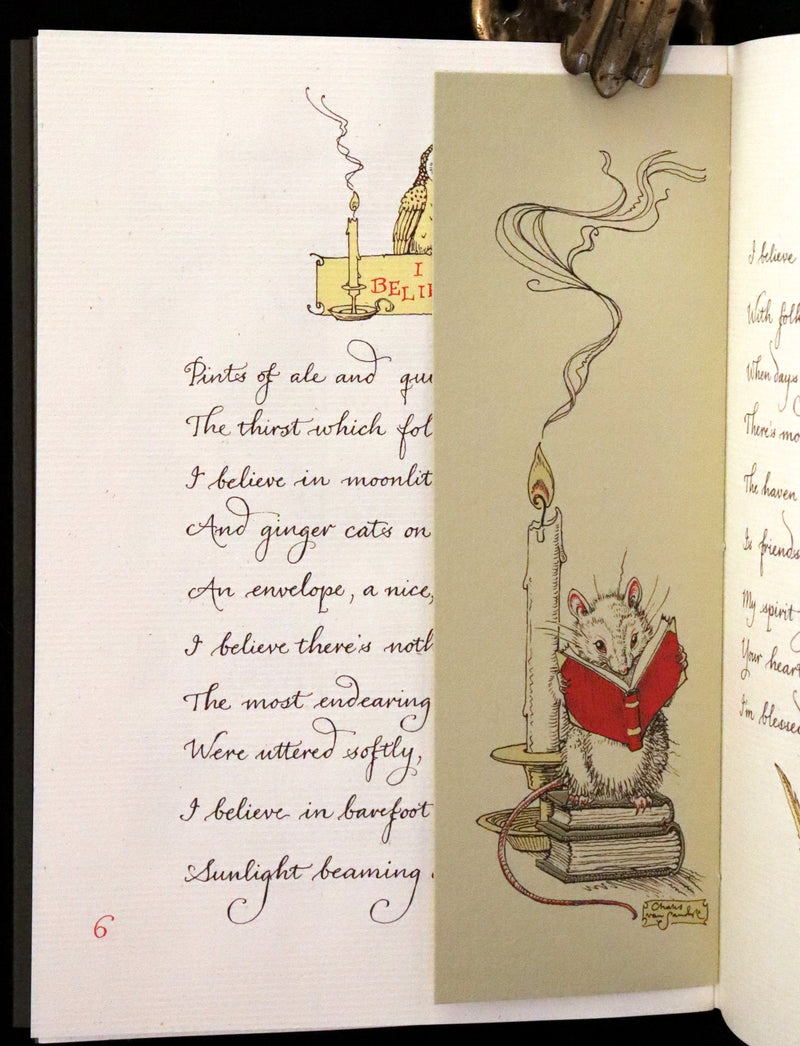 I
BELI
Pints of ale and qui
The thirst which fol
I believe in moonlit
And ginger cats on
An envelope, a nice,
I believe there's noth
The most endearing
Were uttered softly,
I believe in barefoot
Sunlight beaming
6
Charles
van Sandwyk
I believe
With folk
When days
There's mo
The haven
Is friends
My spirit
Your heart
I'm blessed